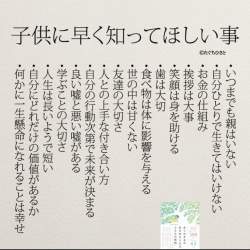 子供に早く知ってほしい事
©たぐちひさと
・いつまでも親はいない
・自分ひとりで生きてはいけない
・お金の仕組み
・挨拶は大事
・笑顔は身を助ける
・歯は大切
・食べ物は体に影響を与える
・世の中は甘くない
・友達の大切さ
・人との上手な付き合い方
・自分の行動次第で未来が決まる
・良い嘘と悪い嘘がある
・学ぶことの大切さ
・人生は長いようで短い
・自分にどれだけの価値があるか
・何かに一生懸命になれることは幸せ